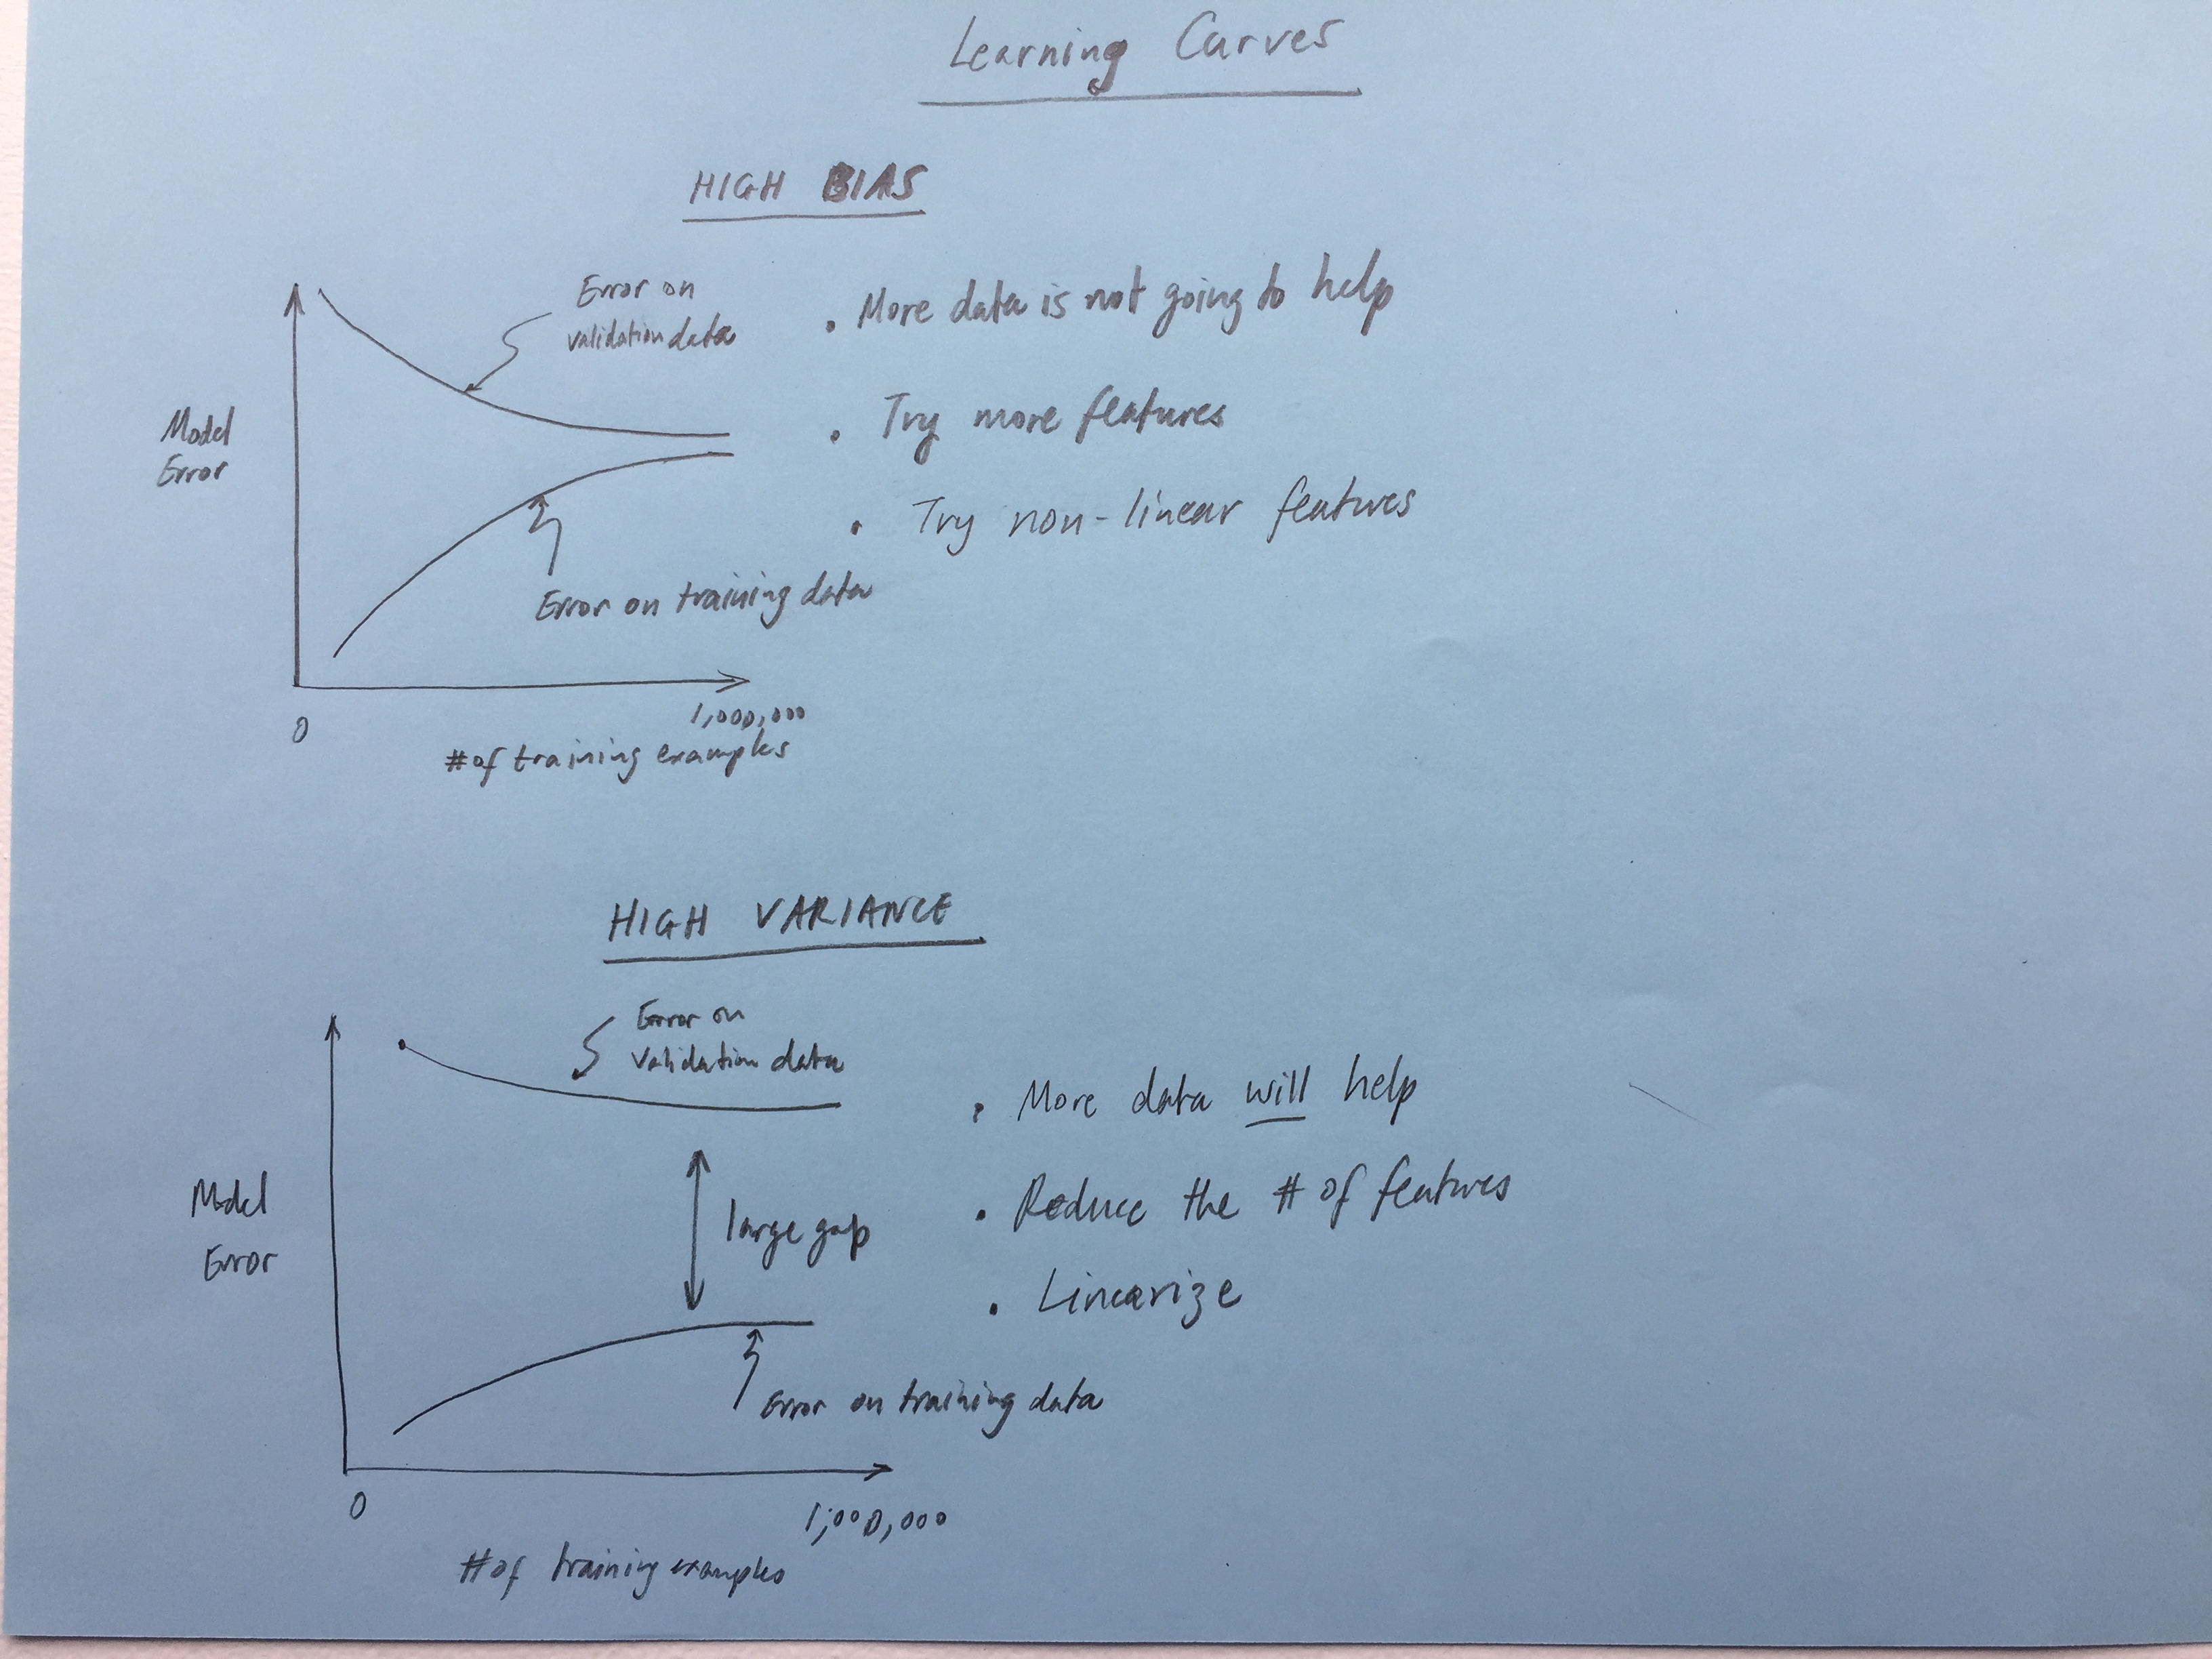 Learning Curves
HIGH BIAS
Model
Error
Error on
validation data
Error on training data
0
1,000,000
# of training examples
• More data is not going to help
• Try more features
• Try non-linear features
HIGH VARIANCE
Model
Error
Error on
validation data
large gap
Error on training data
0
1,000,000
# of training examples
• More data will help
• Reduce the # of features
• Linearize